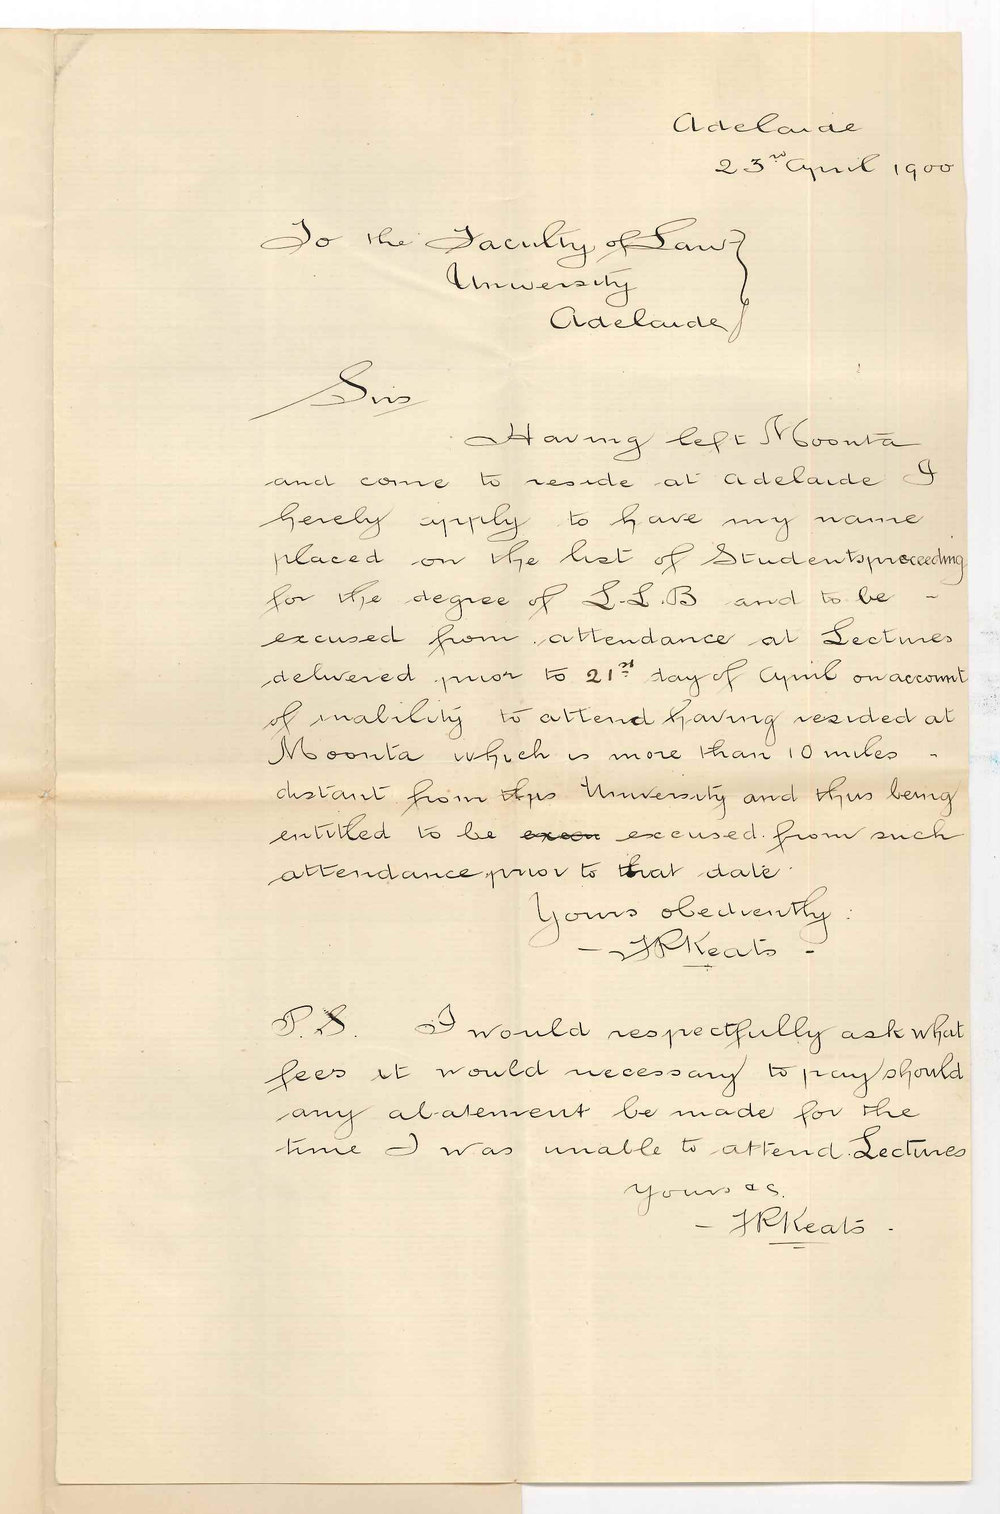 Adelaide
23rd April 1900
To the Faculty of Law
University
Adelaide
Sirs
Having left Moonta
and come to reside at Adelaide I
hereby apply to have my name
placed on the list of Students proceeding
for the degree of L.L.B and to be -
excused from attendance at Lectures
delivered prior to 21st day of April on account
of inability to attend having resided at
Moonta which is more than 10 miles -
distant from this University and thus being
entitled to be excused from such
attendance prior to that date.
Yours obediently.
- FRKeats -
P.S. I would respectfully ask what
fees it would necessary to pay should
any abatement be made for the
time I was unable to attend Lectures
Yours &c.
- FRKeats -